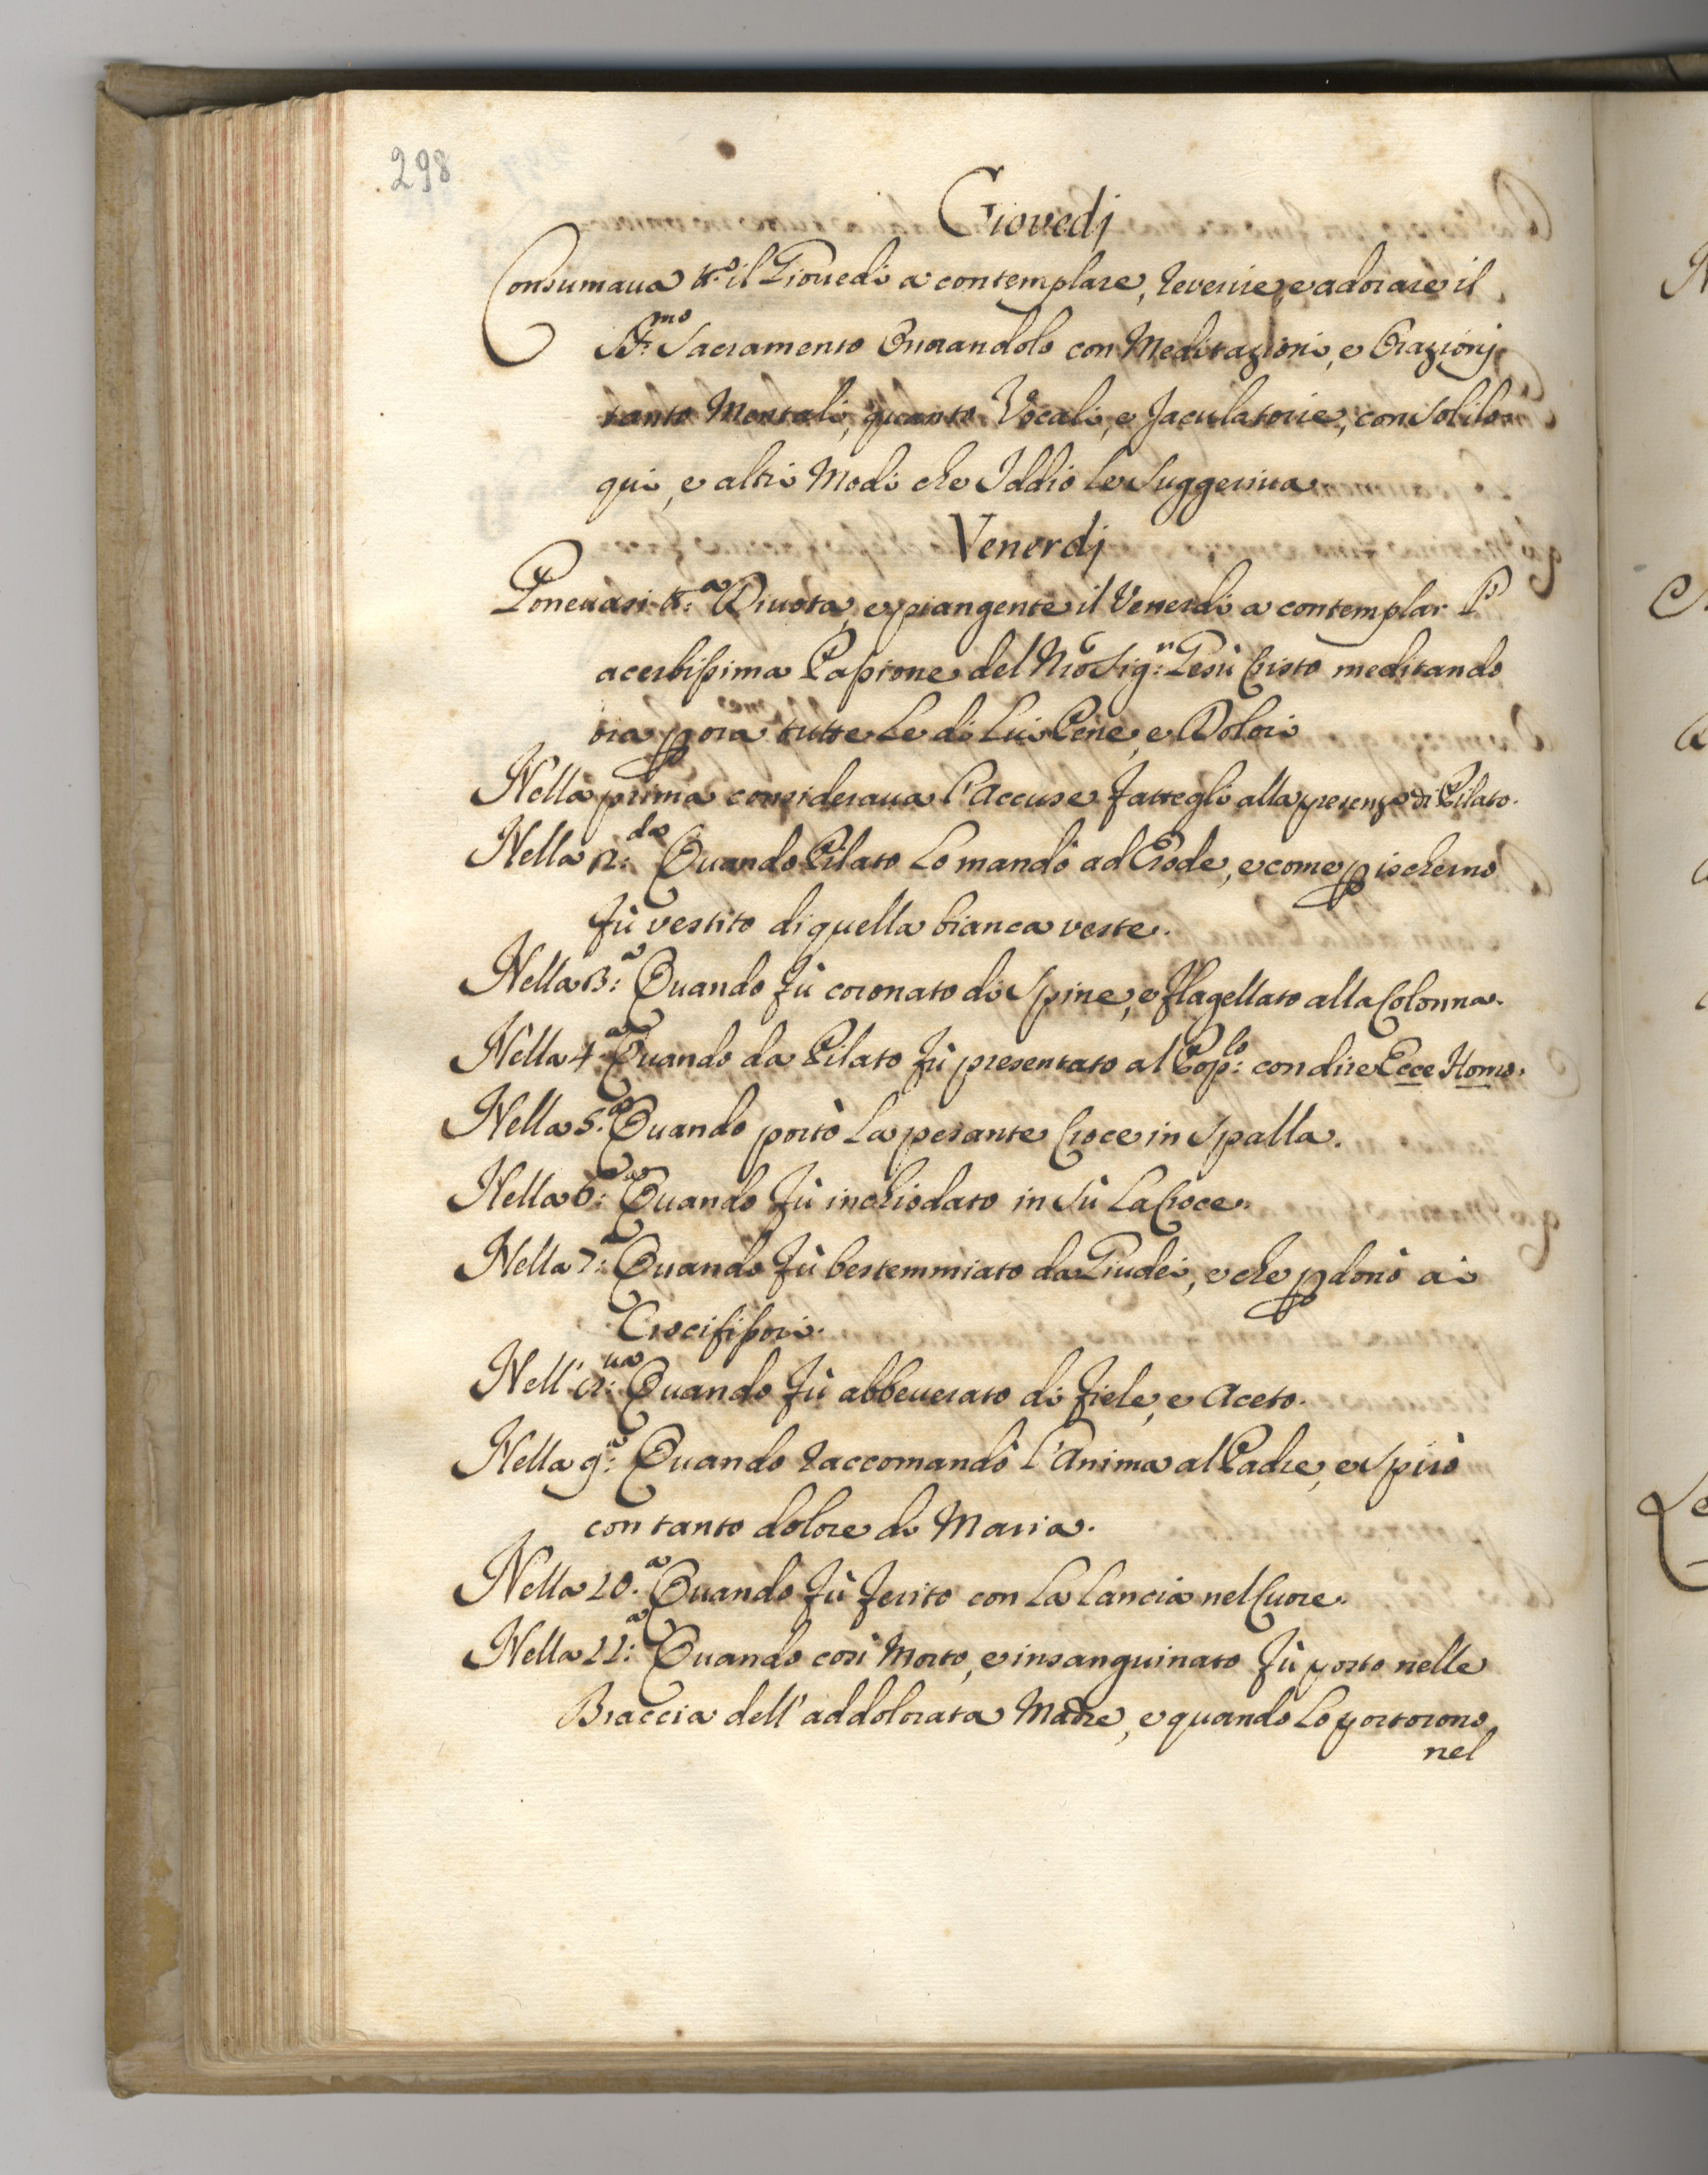 298
Giovedj
Consumaua tt.º il Giouedi a contemplare, reverire, e adorare il
SS.mo Sacramento Onorandolo con Meditazioni, e Orazionj
tanto Mentali, quanto Vocali, e Jaculatorie, con Solilo=
qui, e altri Modi che Iddio Le Suggeriua
Venerdj
Poneuasi tt.ª Diuota, e piangente il Venerdi a contemplar l'
acerbissima Passione del Nrõ Sig.r: Gesù Cristo meditando
ora p ora tutte Le di Lui Pene, e Dolori
Nella prima consideraua l'Accuse fattegli alla presenza di Pilato.
Nella 2:da Quando Pilato Lo mandò ad Erode, e come p ischerno
fù vestito di quella bianca veste.
Nella 3:ª Quando fù coronato di Spine, e flagellato alla Colonna.
Nella 4.ª Quando da Pilato fù presentato al Pop:lo con dire Ecce Homo.
Nella 5.ª Quando portò La pesante Croce in Spalla.
Nella 6:ª Quando fù inchiodato in Sù La Croce.
Nella 7:ª Quando fù bestemmiato da Giudei, e che pdonò ai
Crocifissori.
Nell' 8:ua Quando fù abbeuerato di fiele, e Aceto.
Nella 9:ª Quando raccomandò l'Anima al Padre, e Spirò
con tanto dolore di Maria.
Nella 10.ª Quando fù ferito con La Lancia nel Cuore.
Nella 11:ª Quando così Morto, e insanguinato fù posto nelle
Braccia dell' addolorata Madre, e quando Lo portorono
nel